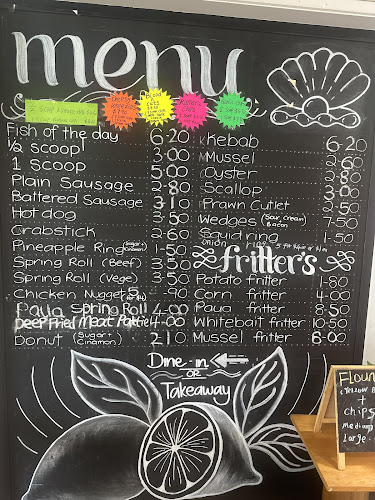 menu
Fish of the day 6-20
½ scoop 3-00
1 Scoop 5-00
Plain Sausage 2-80
Battered Sausage 3-10
Hot dog 3-50
Crabstick 2-60
Pineapple Ring 1-50
Spring Roll (Beef) 3-50
Spring Roll (Vege) 3-50
Chicken Nugget -90
Paua Spring Roll 4-00
Deep Fried Meat Pattie 4-00
Donut (Sugar Cinamon) 2-10
Kebab 6-20
Mussel 2-60
Oyster 2-80
Scallop 3-00
Prawn Cutlet
Wedges (Sour cream Bacon 7-50
Squid ring 1-50
fritters
Potato fritter 1-80
Corn fritter 4-00
Paua fritter 8-50
Whitebait fritter 10-50
Mussel fritter 8-00
Dine-in
OR
Takeaway
Floun
+
chips
Medium
Large